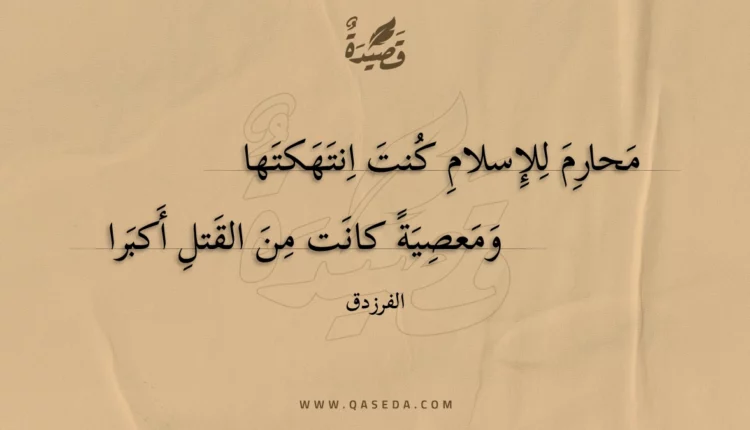 قَصِيدَةٌ
مَحارِمَ لِلإِسلامِ كُنتَ اِنتَهَكتَها
وَمَعصِيَةً كانَت مِنَ القَتلِ أَكبَرا
الفرزدق
WWW.QASEDA.COM